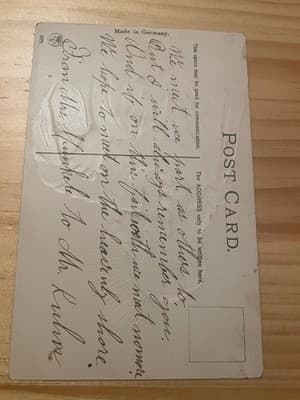 Made in Germany.
POST CARD.
This space may be used for communication.
The ADDRESS only to be written here.
We must we part as others do,
But I will always remember you.
And if on this fair earth we meet no more
We hope to meet on the heavenly shore.
From Mrs. to Mr.